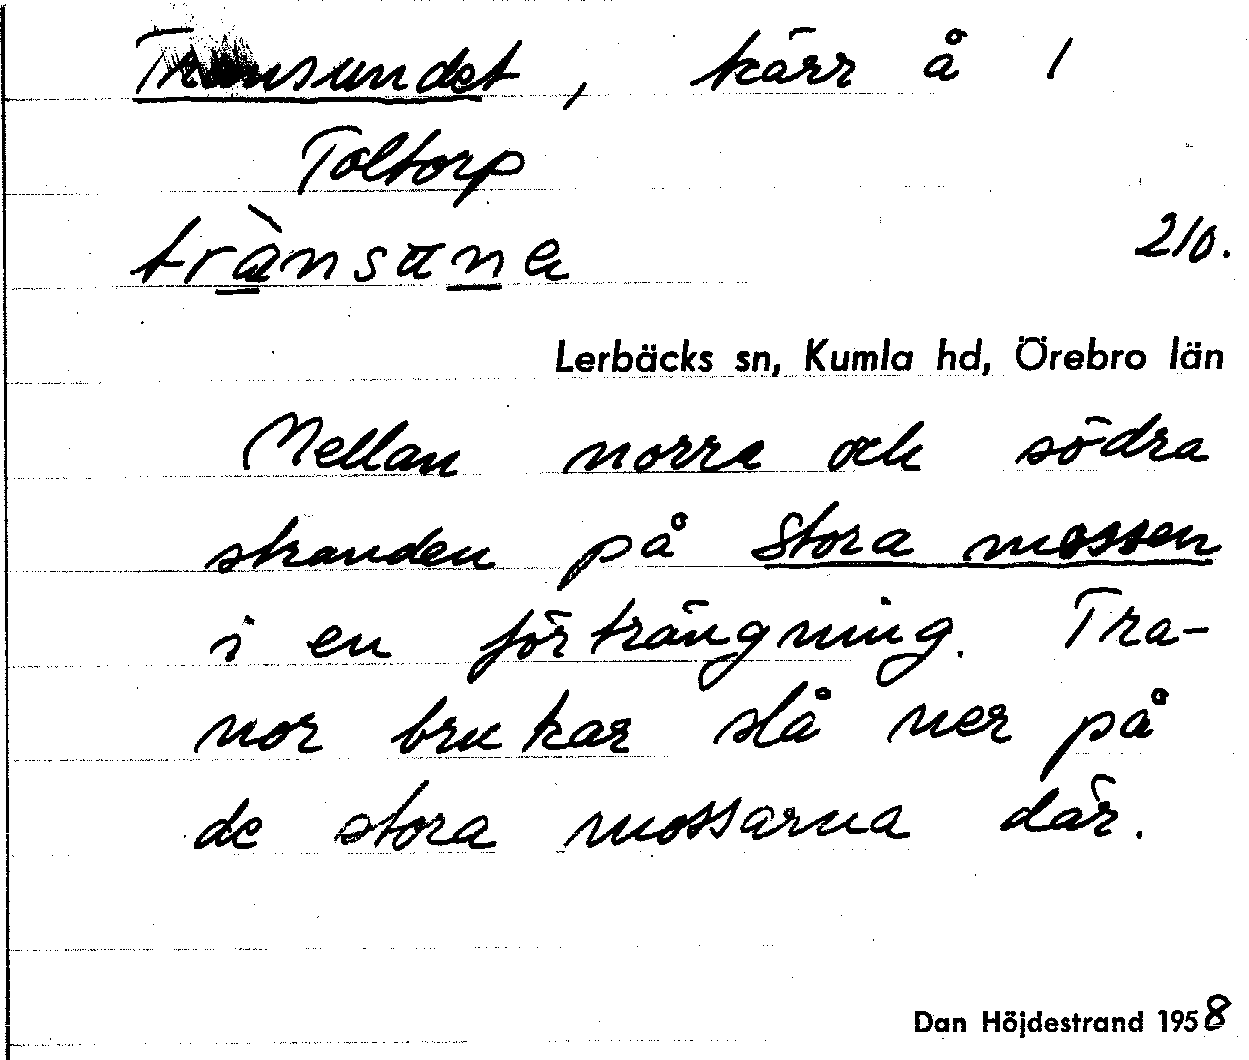 Transundet, kärr å 1
Toltorp
trànsune 210.
Lerbäcks sn, Kumla hd, Örebro län
Mellan norra och södra
stranden på Stora mossen
i en förträngning. Tra-
nor brukar slå ner på
de stora mossarna där.
Dan Höjdestrand 1958